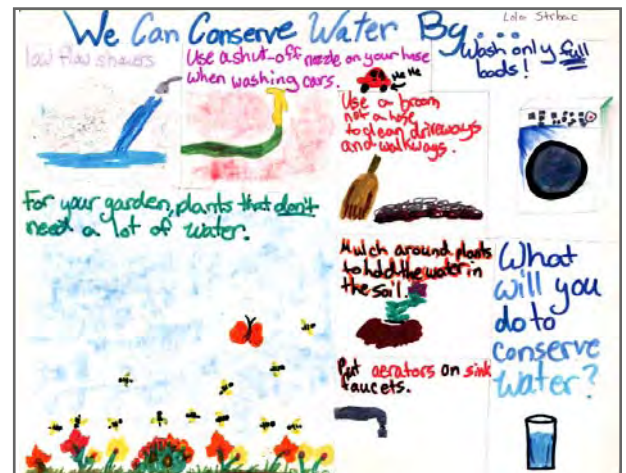 We Can Conserve Water By...
low flow showers
Use a shut-off nozzle on your hose
when washing cars.
Me Me
Use a broom
not a hose
to clean driveways
and walkways.
Wash only full
loads!
For your garden, plants that don't
need a lot of water.
Mulch around plants
to hold the water in
the soil.
Put aerators on sink
faucets.
What
will you
do to
conserve
water?